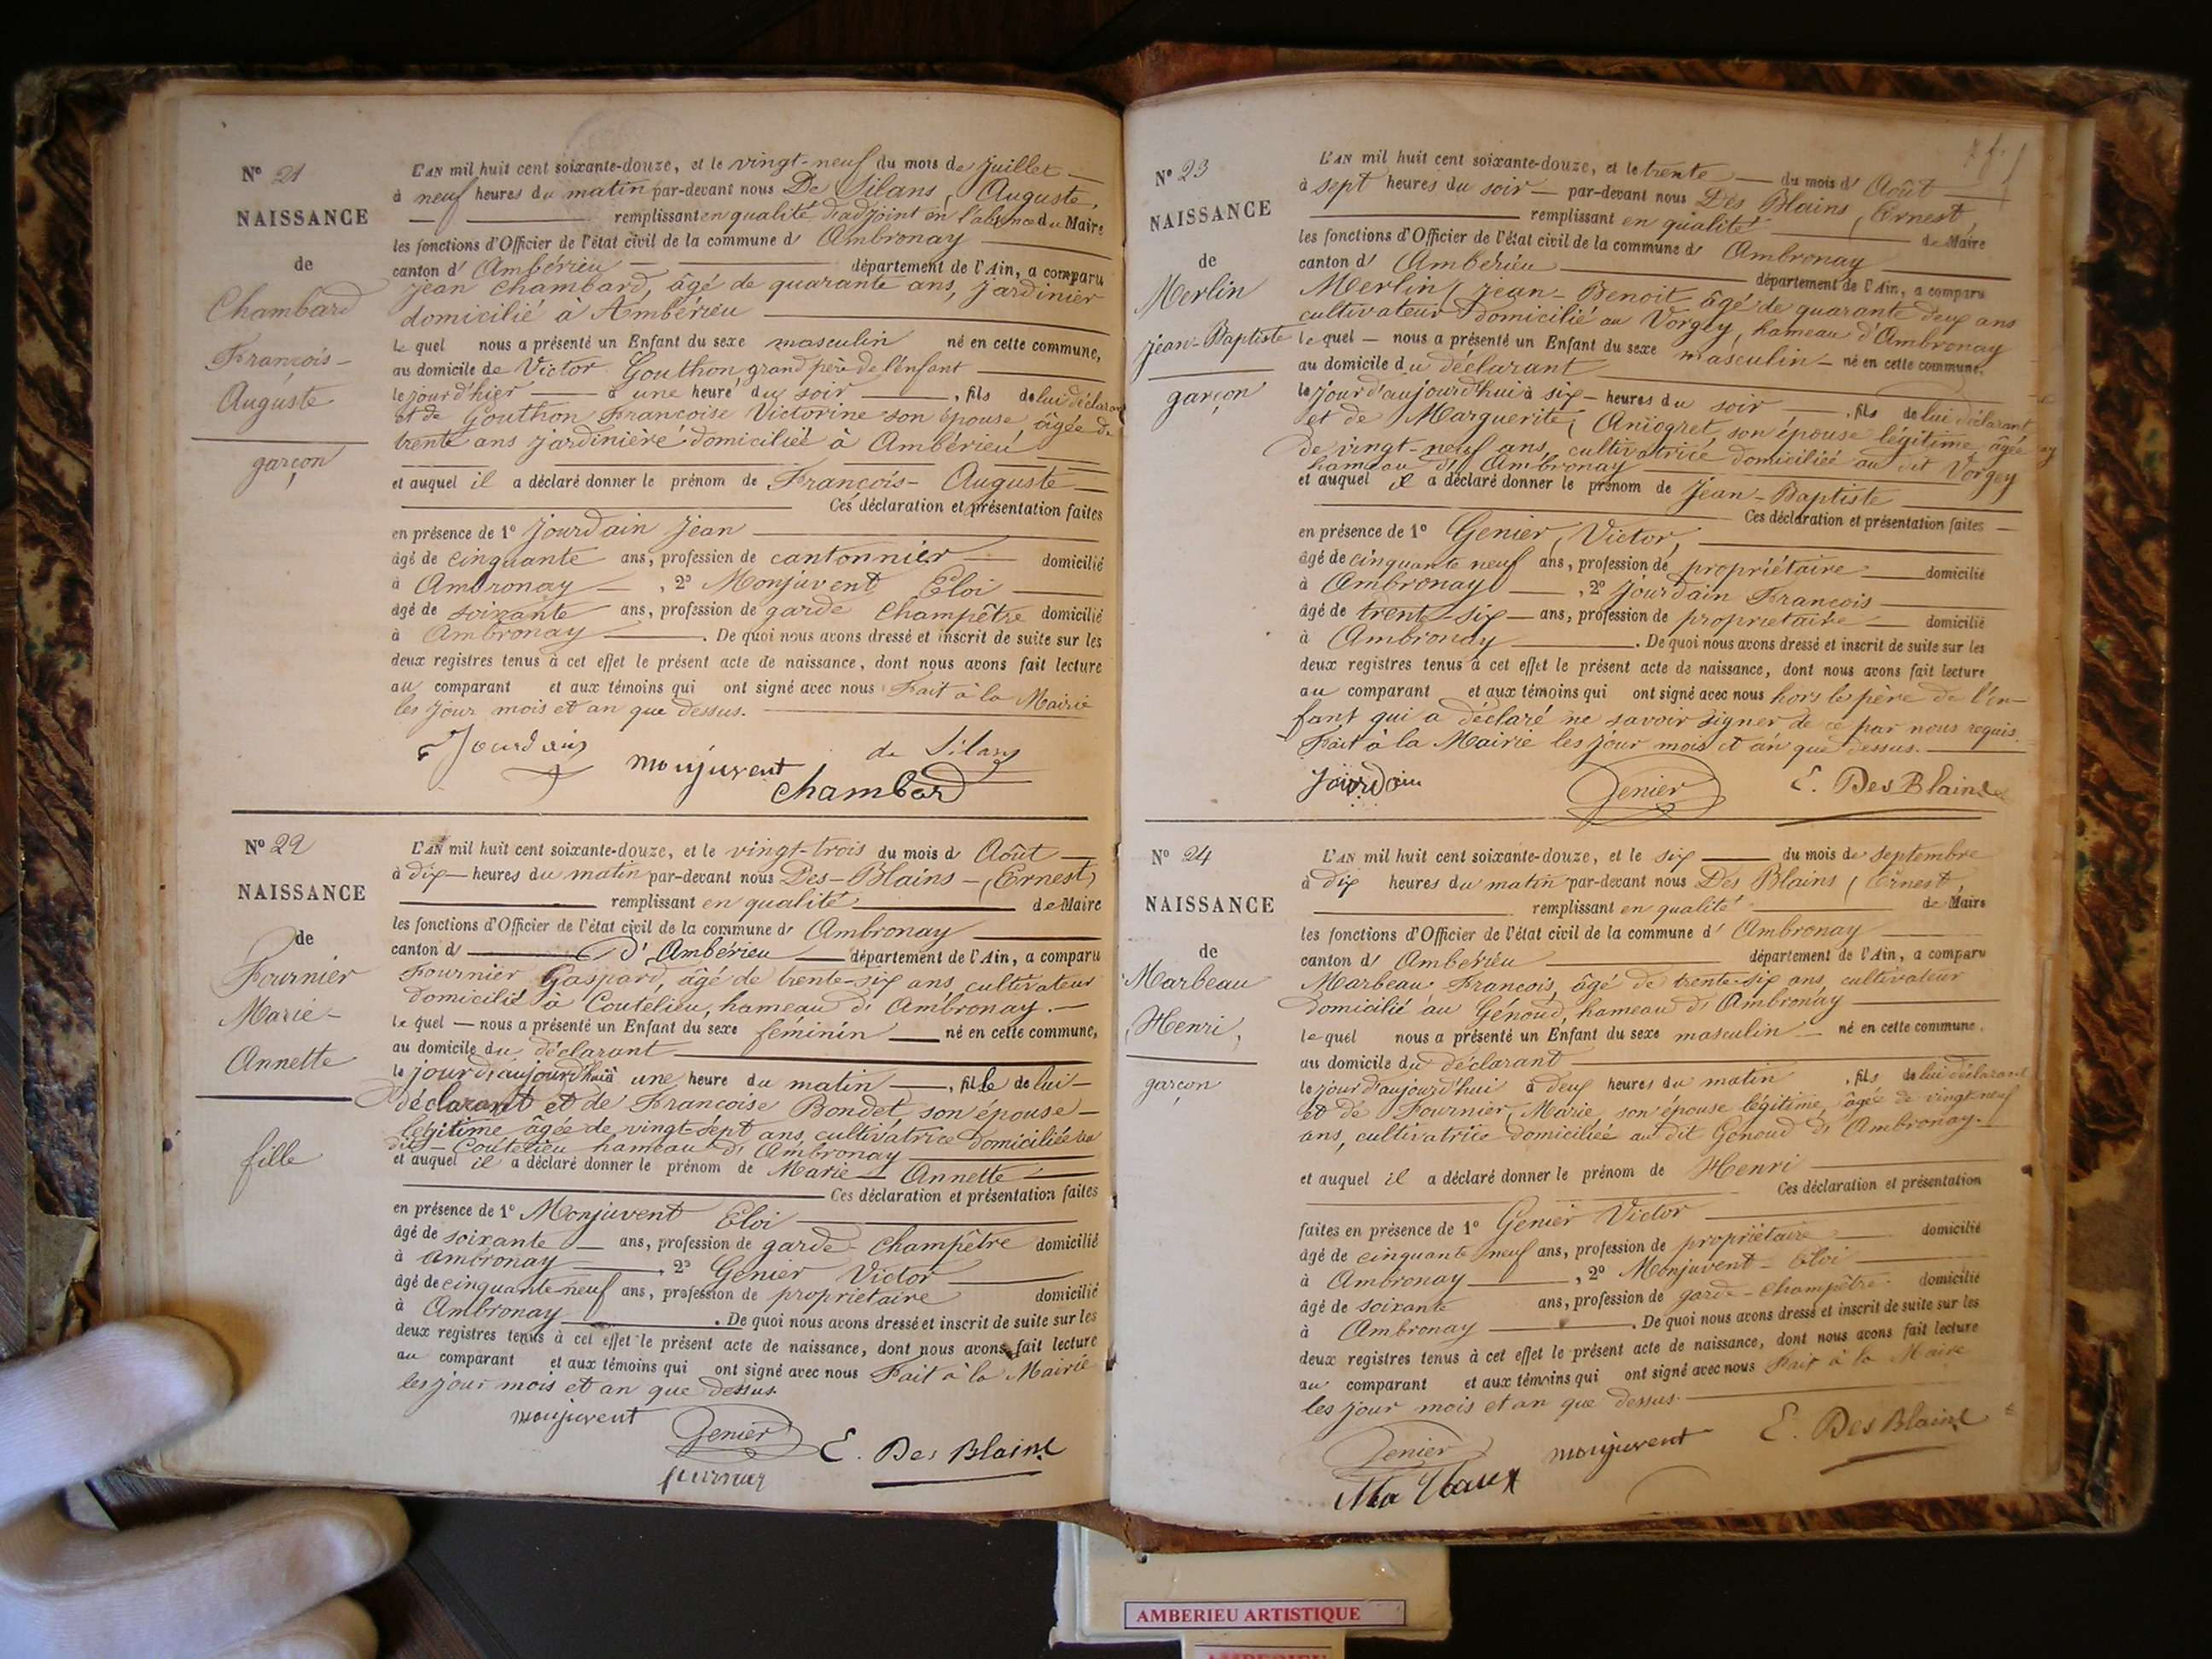 N° 21
NAISSANCE
de
Chambard
François-
Auguste
garçon
L'AN mil huit cent soixante-douze, et le vingt-neuf du mois de Juillet
à neuf heures du matin par-devant nous De Silans, Auguste,
remplissant en qualité d'adjoint en l'absence du Maire
les fonctions d'Officier de l'état civil de la commune d' Ambronay
canton d' Ambérieu département de l'Ain, a comparu
Jean Chambard, âgé de quarante ans, jardinier
domicilié à Ambérieu
lequel nous a présenté un Enfant du sexe masculin né en cette commune,
au domicile de Victor Gouthon grand père de l'enfant
le jour d'hier à une heure du soir, fils de lui déclarant
et de Gouthon Françoise Victorine son épouse âgée de
trente ans jardinière domiciliée à Ambérieu
et auquel il a déclaré donner le prénom de François-Auguste
Ces déclaration et présentation faites
en présence de 1° Jourdain Jean
âgé de cinquante ans, profession de cantonnier domicilié
à Ambronay, 2° Monjuvent Eloi
âgé de soixante ans, profession de garde champêtre domicilié
à Ambronay. De quoi nous avons dressé et inscrit de suite sur les
deux registres tenus à cet effet le présent acte de naissance, dont nous avons fait lecture
au comparant et aux témoins qui ont signé avec nous Fait à la Mairie
les jour mois et an que dessus.
Jourdain monjuvent de Silans
Chambard
N° 22
NAISSANCE
de
Fournier
Marie-
Annette
fille
L'AN mil huit cent soixante-douze, et le vingt-trois du mois d' Août
à dix heures du matin par-devant nous Des-Blains-(Ernest)
remplissant en qualité de Maire
les fonctions d'Officier de l'état civil de la commune d' Ambronay
canton d' d'Ambérieu département de l'Ain, a comparu
Fournier Gaspard, âgé de trente-six ans cultivateur
domicilié à Coutelieu, hameau d'Ambronay.
lequel nous a présenté un Enfant du sexe féminin né en cette commune,
au domicile du déclarant
le jour d'aujourd'hui à une heure du matin, fille de lui-
déclarant et de Françoise Bondet, son épouse-
légitime âgée de vingt-sept ans, cultivatrice domiciliée au
dit-Coutelieu hameau d'Ambronay
et auquel il a déclaré donner le prénom de Marie Annette
Ces déclaration et présentation faites
en présence de 1° Monjuvent Eloi
âgé de soixante ans, profession de garde-champêtre domicilié
à Ambronay, 2° Genier Victor
âgé de cinquante-neuf ans, profession de propriétaire domicilié
à Ambronay. De quoi nous avons dressé et inscrit de suite sur les
deux registres tenus à cet effet le présent acte de naissance, dont nous avons fait lecture
au comparant et aux témoins qui ont signé avec nous Fait à la Mairie
les jour mois et an que dessus.
monjuvent Genier E. Des Blains
N° 23
NAISSANCE
de
Merlin
Jean-Baptiste
garçon
L'AN mil huit cent soixante-douze, et le trente du mois d' Août
à sept heures du soir par-devant nous Des Blains (Ernest)
remplissant en qualité de Maire
les fonctions d'Officier de l'état civil de la commune d' Ambronay
canton d' Ambérieu département de l'Ain, a comparu
Merlin, Jean-Benoit âgé de quarante deux ans
cultivateur domicilié au Vorgey, hameau d'Ambronay
lequel nous a présenté un Enfant du sexe masculin né en cette commune,
au domicile du déclarant
le jour d'aujourd'hui à six heures du soir, fils de lui déclarant
et de Marguerite, Aniogret, son épouse légitime âgée
de vingt-neuf ans, cultivatrice domiciliée au dit Vorgey
hameau d'Ambronay
et auquel il a déclaré donner le prénom de Jean-Baptiste
Ces déclaration et présentation faites
en présence de 1° Genier, Victor,
âgé de cinquante neuf ans, profession de propriétaire domicilié
à Ambronay, 2° Jourdain François
âgé de trente-six ans, profession de propriétaire domicilié
à Ambronay. De quoi nous avons dressé et inscrit de suite sur les
deux registres tenus à cet effet le présent acte de naissance, dont nous avons fait lecture
au comparant et aux témoins qui ont signé avec nous hors le père de l'en-
fant qui a déclaré ne savoir signer de ce par nous requis.
Fait à la Mairie les jour mois et an que dessus.
Jourdain Genier E. Des Blains
N° 24
NAISSANCE
de
Marbeau
Henri,
garçon
L'AN mil huit cent soixante-douze, et le six du mois de septembre
à dix heures du matin par-devant nous Des Blains (Ernest)
remplissant en qualité de Maire
les fonctions d'Officier de l'état civil de la commune d' Ambronay
canton d' Ambérieu département de l'Ain, a comparu
Marbeau François, âgé de trente-six ans, cultivateur
domicilié au Génoud, hameau d'Ambronay
lequel nous a présenté un Enfant du sexe masculin né en cette commune,
au domicile du déclarant
le jour d'aujourd'hui à deux heures du matin, fils de lui déclarant
et de Fournier, Marie, son épouse légitime, âgée de vingt neuf
ans, cultivatrice domiciliée au dit Genoud d'Ambronay.
et auquel il a déclaré donner le prénom de Henri
Ces déclaration et présentation
faites en présence de 1° Genier Victor
âgé de cinquante neuf ans, profession de propriétaire domicilié
à Ambronay, 2° Monjuvent-Eloi
âgé de soixante ans, profession de garde-champêtre domicilié
à Ambronay. De quoi nous avons dressé et inscrit de suite sur les
deux registres tenus à cet effet le présent acte de naissance, dont nous avons fait lecture
au comparant et aux témoins qui ont signé avec nous Fait à la Mairie
les jour mois et an que dessus.
Genier monjuvent E. Des Blains
AMBERIEU ARTISTIQUE